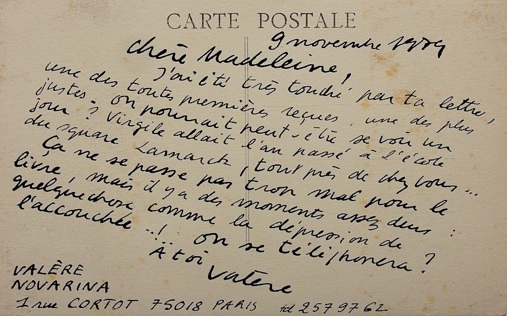 CARTE POSTALE
9 novembre 1984
Chère Madeleine !
J'ai été très touché par ta lettre,
une des toutes premières reçues, une des plus
justes. On pourrait peut-être se voir un
jour ? Virgile allait l'an passé à l'école
du square Lamarck, tout près de chez vous...
Ça ne se passe pas trop mal pour le
livre, mais il y a des moments assez durs :
quelque chose comme la dépression de
l'accouchée...! On se téléphonera ?
À toi
Valère
VALÈRE
NOVARINA
1 rue CORTOT 75018 PARIS tel 257 97 62